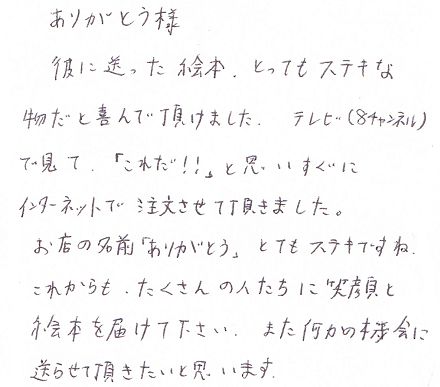 ありがとう様
彼に送った絵本、とってもステキな
物だと喜んで頂けました、テレビ(8チャンネル)
で見て、「これだ!!」と思いすぐに
インターネットで注文させて頂きました。
お店の名前「ありがとう」とてもステキですね、
これからも、たくさんの人たちに笑顔と
絵本を届けて下さい、また何かの機会に
送らせて頂きたいと思います、